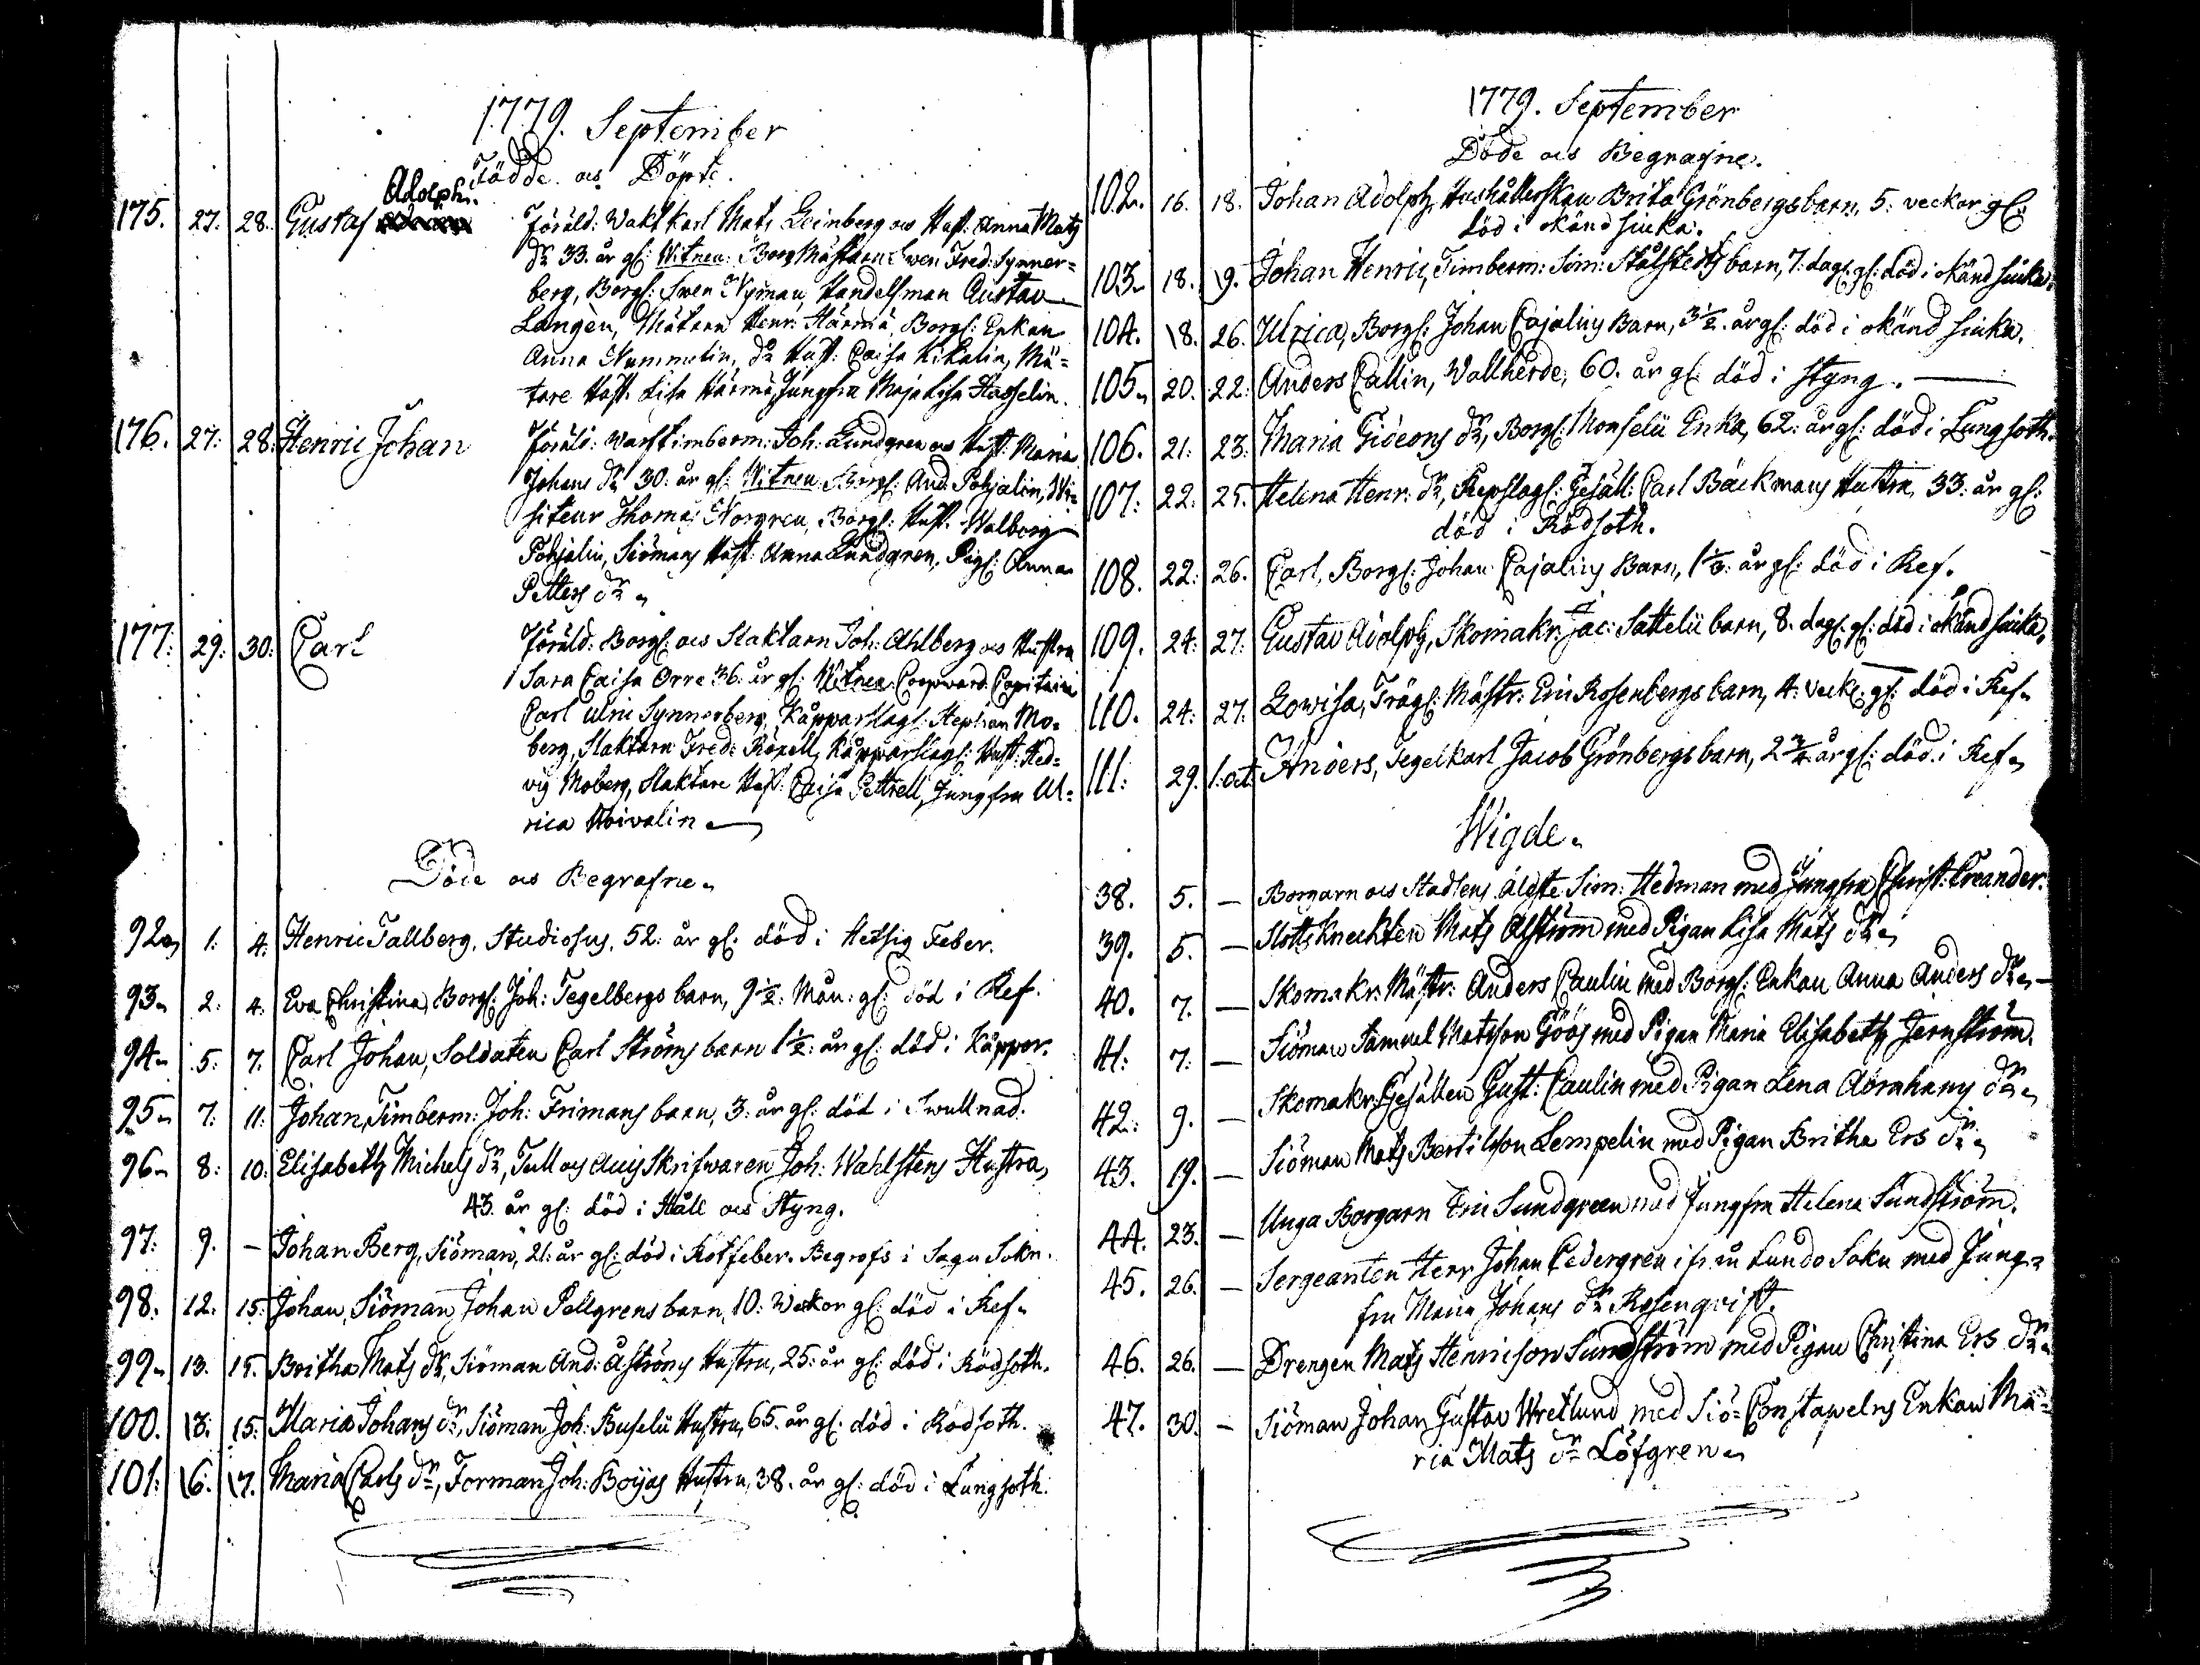 1779. September
Födde och Döpte.
Adolph.
175. 27. 28. Gustaf Föräld: Waktkarl Mats Leinberg och Hust: Anna Mats
dr 33. år gl: Witnen: BorgMästaren Swen Fred: Synner=
berg, Borgl: Swen Nyman, Handelsman Gustav
Langèn, Mätaren Henr: Härmä, Borgl: Enkan
Anna Nummelin, do Hust: Caisa Kikalin, Mä=
tare Hust. Lisa Härmä, Jungfru Maja Lisa Hasselin.
176. 27: 28: Henric Johan Föräld: Warftimberm: Joh: Lundgren och Hust: Maria
Johans dr 30: år gl: Witnen: Borgl: And. Pohjalin, Wi=
siteur Thomas Norgren, Borgl: Hust. Walborg
Pohjalin, Siömans Hust: Anna Lundgren, Pigl: Anna
Petters dr
177: 29: 30: Carl Föräld: Borgl: och Slaktarn Joh: Ahlberg och Hustru
Sara Caisa Orre 36: år gl: Witnen: Coopvard. Capitain
Carl Ulric Synnerberg, Kåpparslagl: Stephan Mo=
berg, Slaktarn Fred: Röxell, Kåpparslagl: Hust: Hed=
vig Moberg, Slaktare Hust: Caisa Pettrell, Jungfru Ul=
rica Hoivalin
Döde och Begrafne
92. 1: 4: Henric Tallberg, Studiosus, 52: år gl: död i Hetsig Feber.
93. 2: 4: Eva Christina, Borgl: Joh: Tegelbergs barn, 9 1/2: Mån: gl: död i Ref.
94. 5: 7. Carl Johan, Soldaten Carl Ströms barn 1 1/2: år gl: död i Kåppor.
95. 7: 11: Johan, Timberm: Joh: Frimans barn, 3: år gl: död i Swullnad.
96. 8: 10: Elisabeth Michels dr, Tull och Accis Skrifwaren Joh: Wahlstens Hustru,
43. år gl: död i Håll och Styng.
97: 9. - Johan Berg, Siöman, 21: år gl: död i Rötfeber. Begrofs i Sagu Sokn.
98. 12. 15: Johan, Siöman Johan Pellgrens barn, 10: Weckor gl: död i Ref
99. 13. 15. Britha Mats dr, Siöman And: Åströms Hustru, 25: år gl: död i Rödsoth.
100. 13: 15: Maria Johans dr, Siöman Joh: Buselii Hustru, 65. år gl: död i Rödsoth.
101: 16: 17. Maria Carls dr, Forman Joh: Boijas Hustru, 38. år gl: död i Lungsoth.
1779. September
Döde och Begrafne.
102. 16. 18. Johan Adolph, Hushållerskan Brita Grönbergs barn, 5: veckor gl:
död i okänd siuka.
103. 18. 19. Johan Henric, Timberm: Sim: Stålstedts barn, 7: dagl: gl: död i okänd siuka.
104. 18. 26. Ulrica, Borgl: Johan Cajalins Barn, 3 1/2. år gl: död i okänd siuka.
105. 20. 22: Anders Callin, Wallherde, 60. år gl: död i styng.
106. 21: 23: Maria Gideons dr, Borgl: Monselii Enka, 62: år gl: död i Lungsoth.
107: 22: 25. Helena Henr: dr, Repslagl: Gesäll: Carl Bäckmans Hustru, 33: år gl:
död i Rödsoth.
108. 22: 26. Carl, Borgl: Johan Cajalins Barn, 1 1/3: år gl: död i Ref.
109. 24: 27: Gustav Adolph, Skomakr: Jac: Sattelii barn, 8. dagl: gl: död i okänd siuka.
110. 24: 27: Lowisa, Trägl: Mästr: Eric Rosenbergs barn, 4: veck: gl: död i Ref
111: 29. 1: oct: Anders, Tegelkarl Jacob Grönbergs barn, 2 3/4 år gl: död i Ref
Wigde
38. 5. - Borgarn och Stadsens älste Sim: Hedman med Jungfru Christ: Creander.
39. 5. - SlottsKnechten Mats Alström med Pigan Lisa Mats dr
40. 7. - Skomakr: Mästr: Anders Caulin med Borgl: Enkan Anna Anders dr
41: 7: - Siöman Samuel Matsson Göös med Pigan Maria Elisabeth Jernström.
42: 9. - Skomakr: Gesällen Gust: Caulin med Pigan Lena Abrahams dr
43. 19. - Siöman Mats Bertilsson Lempelin med Pigan Britha Ers dr
44. 23. - Unga Borgarn Eric Sundgreen med Jungfru Helena Sundström.
45. 26. - Sergeanten Herr Johan Cedergren ifrån Lundo Sokn med Jung=
fru Maria Johans dr Rosenqvist.
46. 26. - Drengen Mats Henricson Sundström med Pigan Christina Ers dr
47. 30. - Siöman Johan Gustav Wretlund med Siö=Constapelns Enkan Ma=
ria Mats dr Löfgren